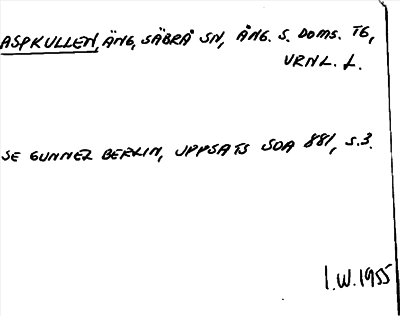 ASPKULLEN, ÄNG, SÄBRÅ SN, ÅNG. S. DOMS. TG,
VRNL. L.
SE GUNNEL BERLIN, UPPSATS SOA 881, S.3.
I.W. 1955